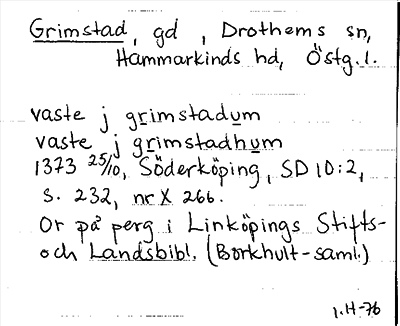 Grimstad, gd, Drothems sn,
Hammarkinds hd, Östg. l.
vaste j grimstadum
vaste j grimstadhum
1373 25/10, Söderköping, SD 10:2,
s. 232, nr X 266.
Or på perg i Linköpings Stifts-
och Landsbibl. (Borkhult-saml.)
1.H-76